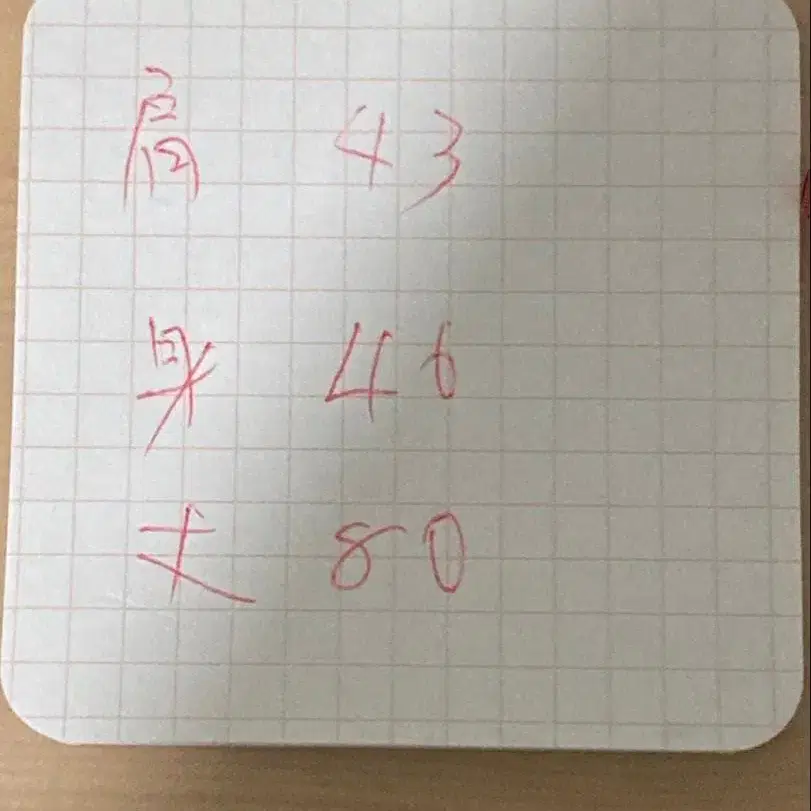 肩 43
身 46
丈 80